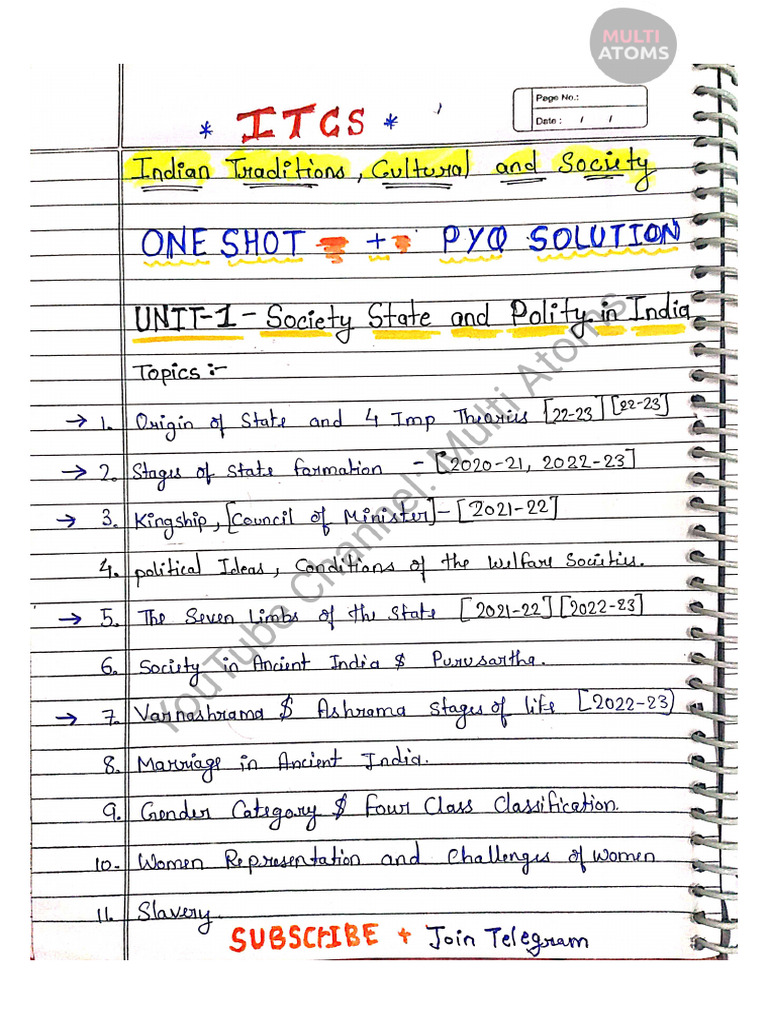 MULTI
ATOMS
Page No.:
Date : / /
* ITCS *
Indian Traditions, Cultural and Society
ONE SHOT + PYQ SOLUTION
UNIT-1 - Society State and Polity in India
Topics :-
→ 1. Origin of State and 4 Imp Theories [22-23] [22-23]
→ 2. Stages of State formation - [2020-21, 2022-23]
→ 3. Kingship, [Council of Minister] - [2021-22]
4. political Ideas, Conditions of the Welfare Societies.
→ 5. The Seven Limbs of the State [2021-22] [2022-23]
6. Society in Ancient India $ Purusartha.
→ 7. Varnashrama $ Ashrama Stages of life [2022-23)
8. Marriage in Ancient India.
9. Gender Category $ Four Class Classification.
10- Women Representation and Challenges of Women
11. Slavery.
SUBSCRIBE + Join Telegram
YouTube Channel: Multi Atoms